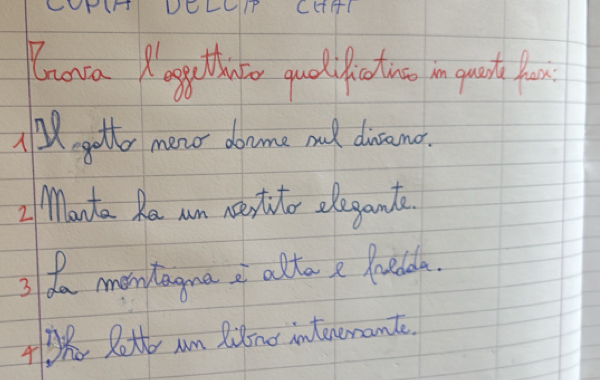 COPIA DELLA CHAT
Trova l'aggettivo qualificativo in queste frasi:
1 Il gatto nero dorme sul divano.
2 Marta ha un vestito elegante.
3 La montagna è alta e fredda.
4 Ho letto un libro interessante.